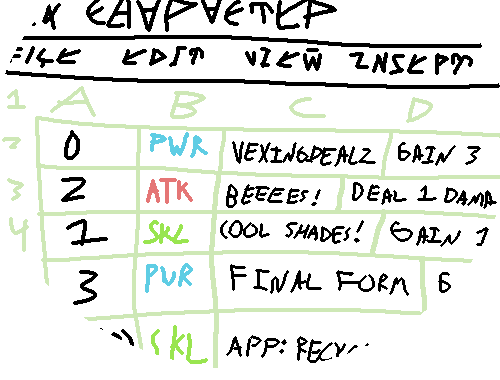 FILE EDIT VIEW INSERT
1 A B C D
2 0 PWR VEXINGDEALZ GAIN 3
3 2 ATK BEEEES! DEAL 1 DAMA
4 1 SKL COOL SHADES! GAIN 1
3 PWR FINAL FORM G
SKL APP: RECY